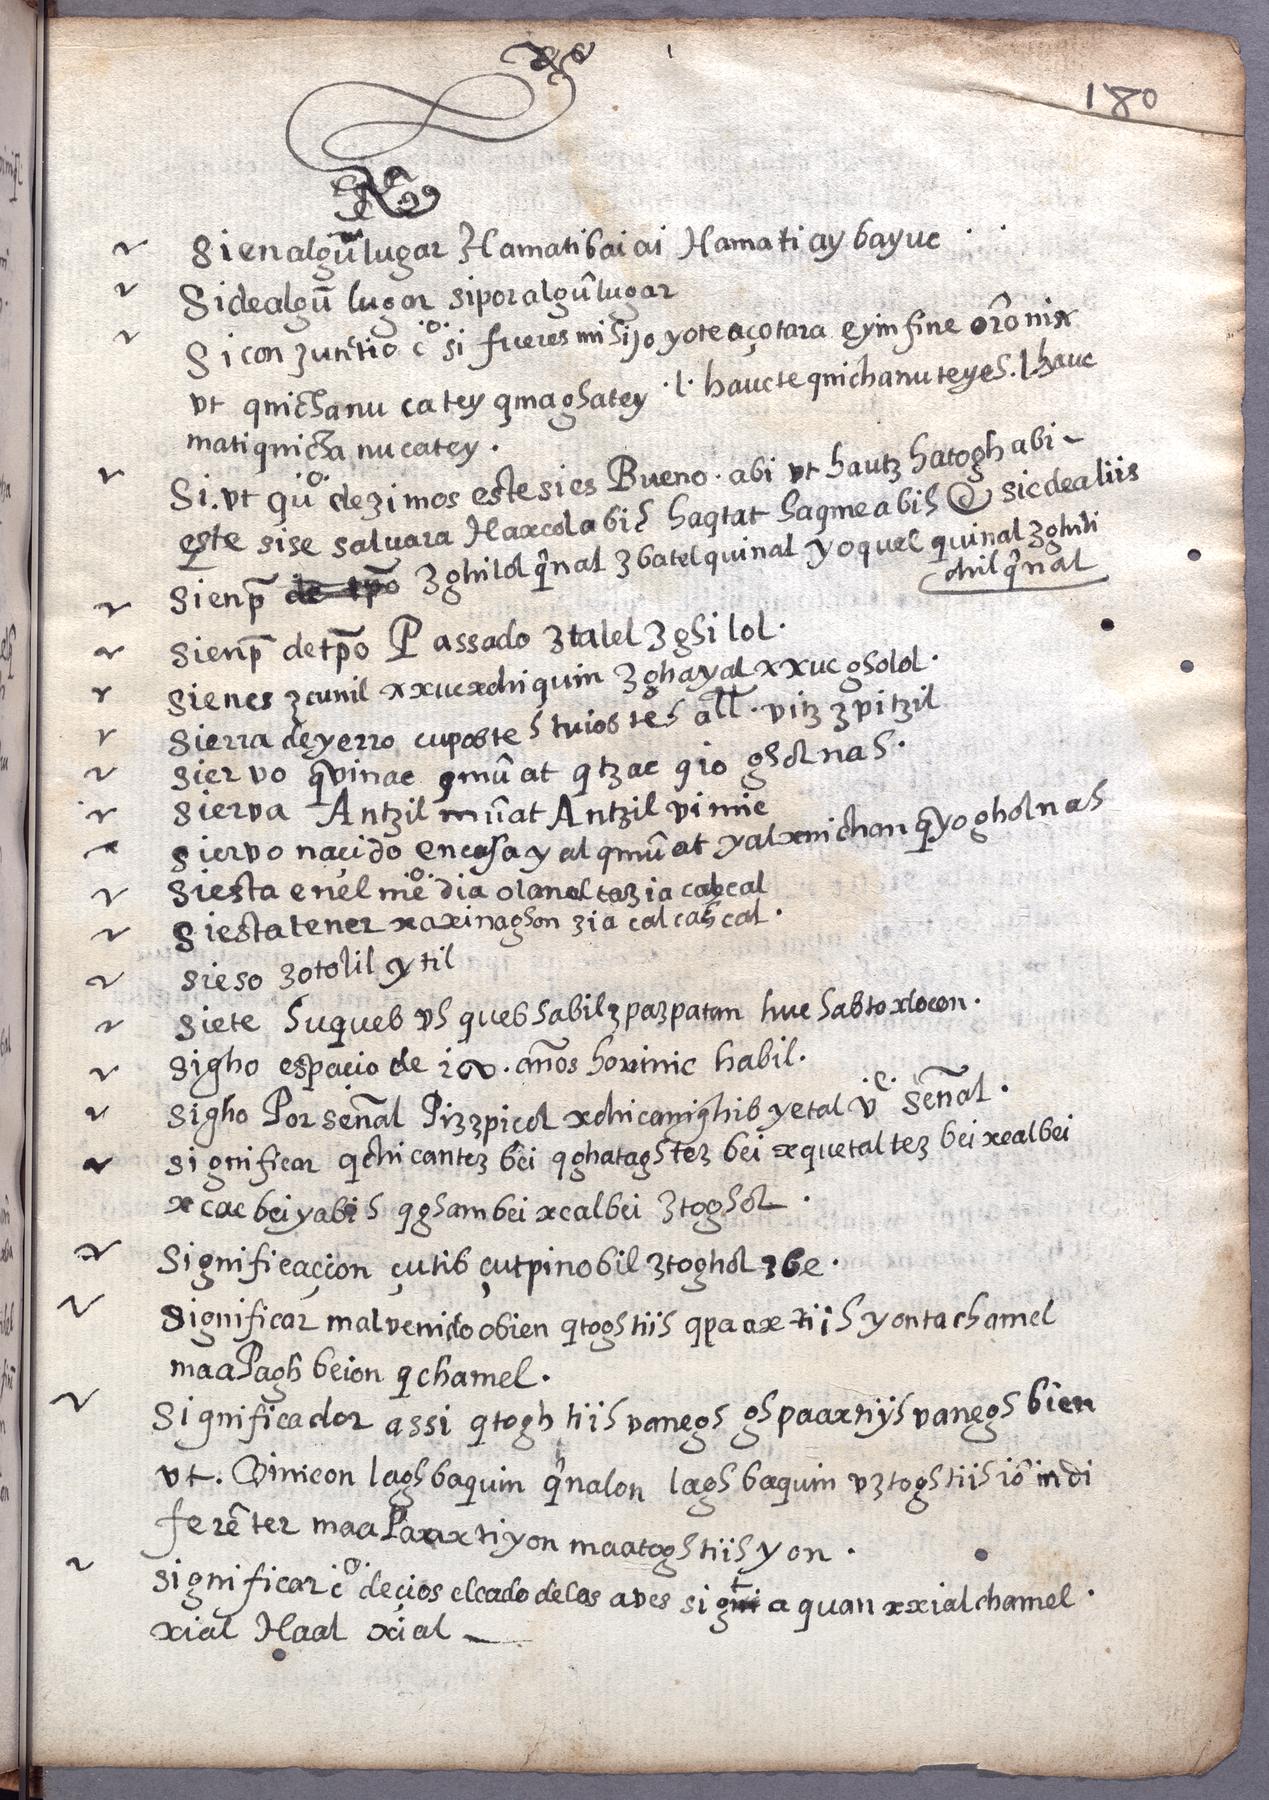 180
Si en algũ lugar Hamatibai ai Hamati ay bayuc
Si de algũ lugar si por algũ lugar
Si conzunctio c̊ si fueres mi hijo yo te açotara
vt qnichanu catey qmaghatey .l. haucte qnichanuteyeh .l. hauc
mati qnicha nucatey.
Si. vt qũ dezimos este si es Bueno. abi vt hautz hatogh abi
este si se saluara Haxcolabih haqtat haqmeabih
Sienp̃ zghilol q̃nal zbatelquinal yoquel quinal zghili
chil q̃nal
Sienp̃ de tp̃o Passado ztalel zghilol.
Sienes zcunil xxucxchiquin zghayal xxuc gholol.
Sierra de yerro all. vitz zpitzil
Siervo qvinac qmũat qtzac qio gholnah.
Sierva Antzil mũat Antzil vinic
Siervo naçido en casa yal qmũat yalxnichan qyogholnah
Siesta en el me᷉ dia olanal tazia cahcal
Siesta tener xaxinaghon zia cal cahcal.
Sieso zotolil ytil
Siete huqueb vh queb habil zpazpatan huc habtoxlocon.
Sigho espaçio de 100. años hovinic habil.
Sigho Por señal Pizzpicol xchicanighib yetal señal.
Significar qchicantez bei qghataghtez bei xquetaltez bei xcalbei
xcac bei yabih qghambei xcalbei ztoghol.
Significaçion çutib çutpinobil ztoghol zbe.
Significar mal venido o bien qtogh tiih qpaax tiih yonta chamel
maa Pagh beion qchamel.
Significador assi qtogh tiih vanegh gh paaxtiyh vanegh bien
vt. Vinicon lagh baquin q̃nalon lagh baquin vztogh tiih iõ indi
ferẽter maa Paaxtiyon maatogh tiih yon.
Significar c̊ de aves a quan xxial chamel.
xial Haal xial